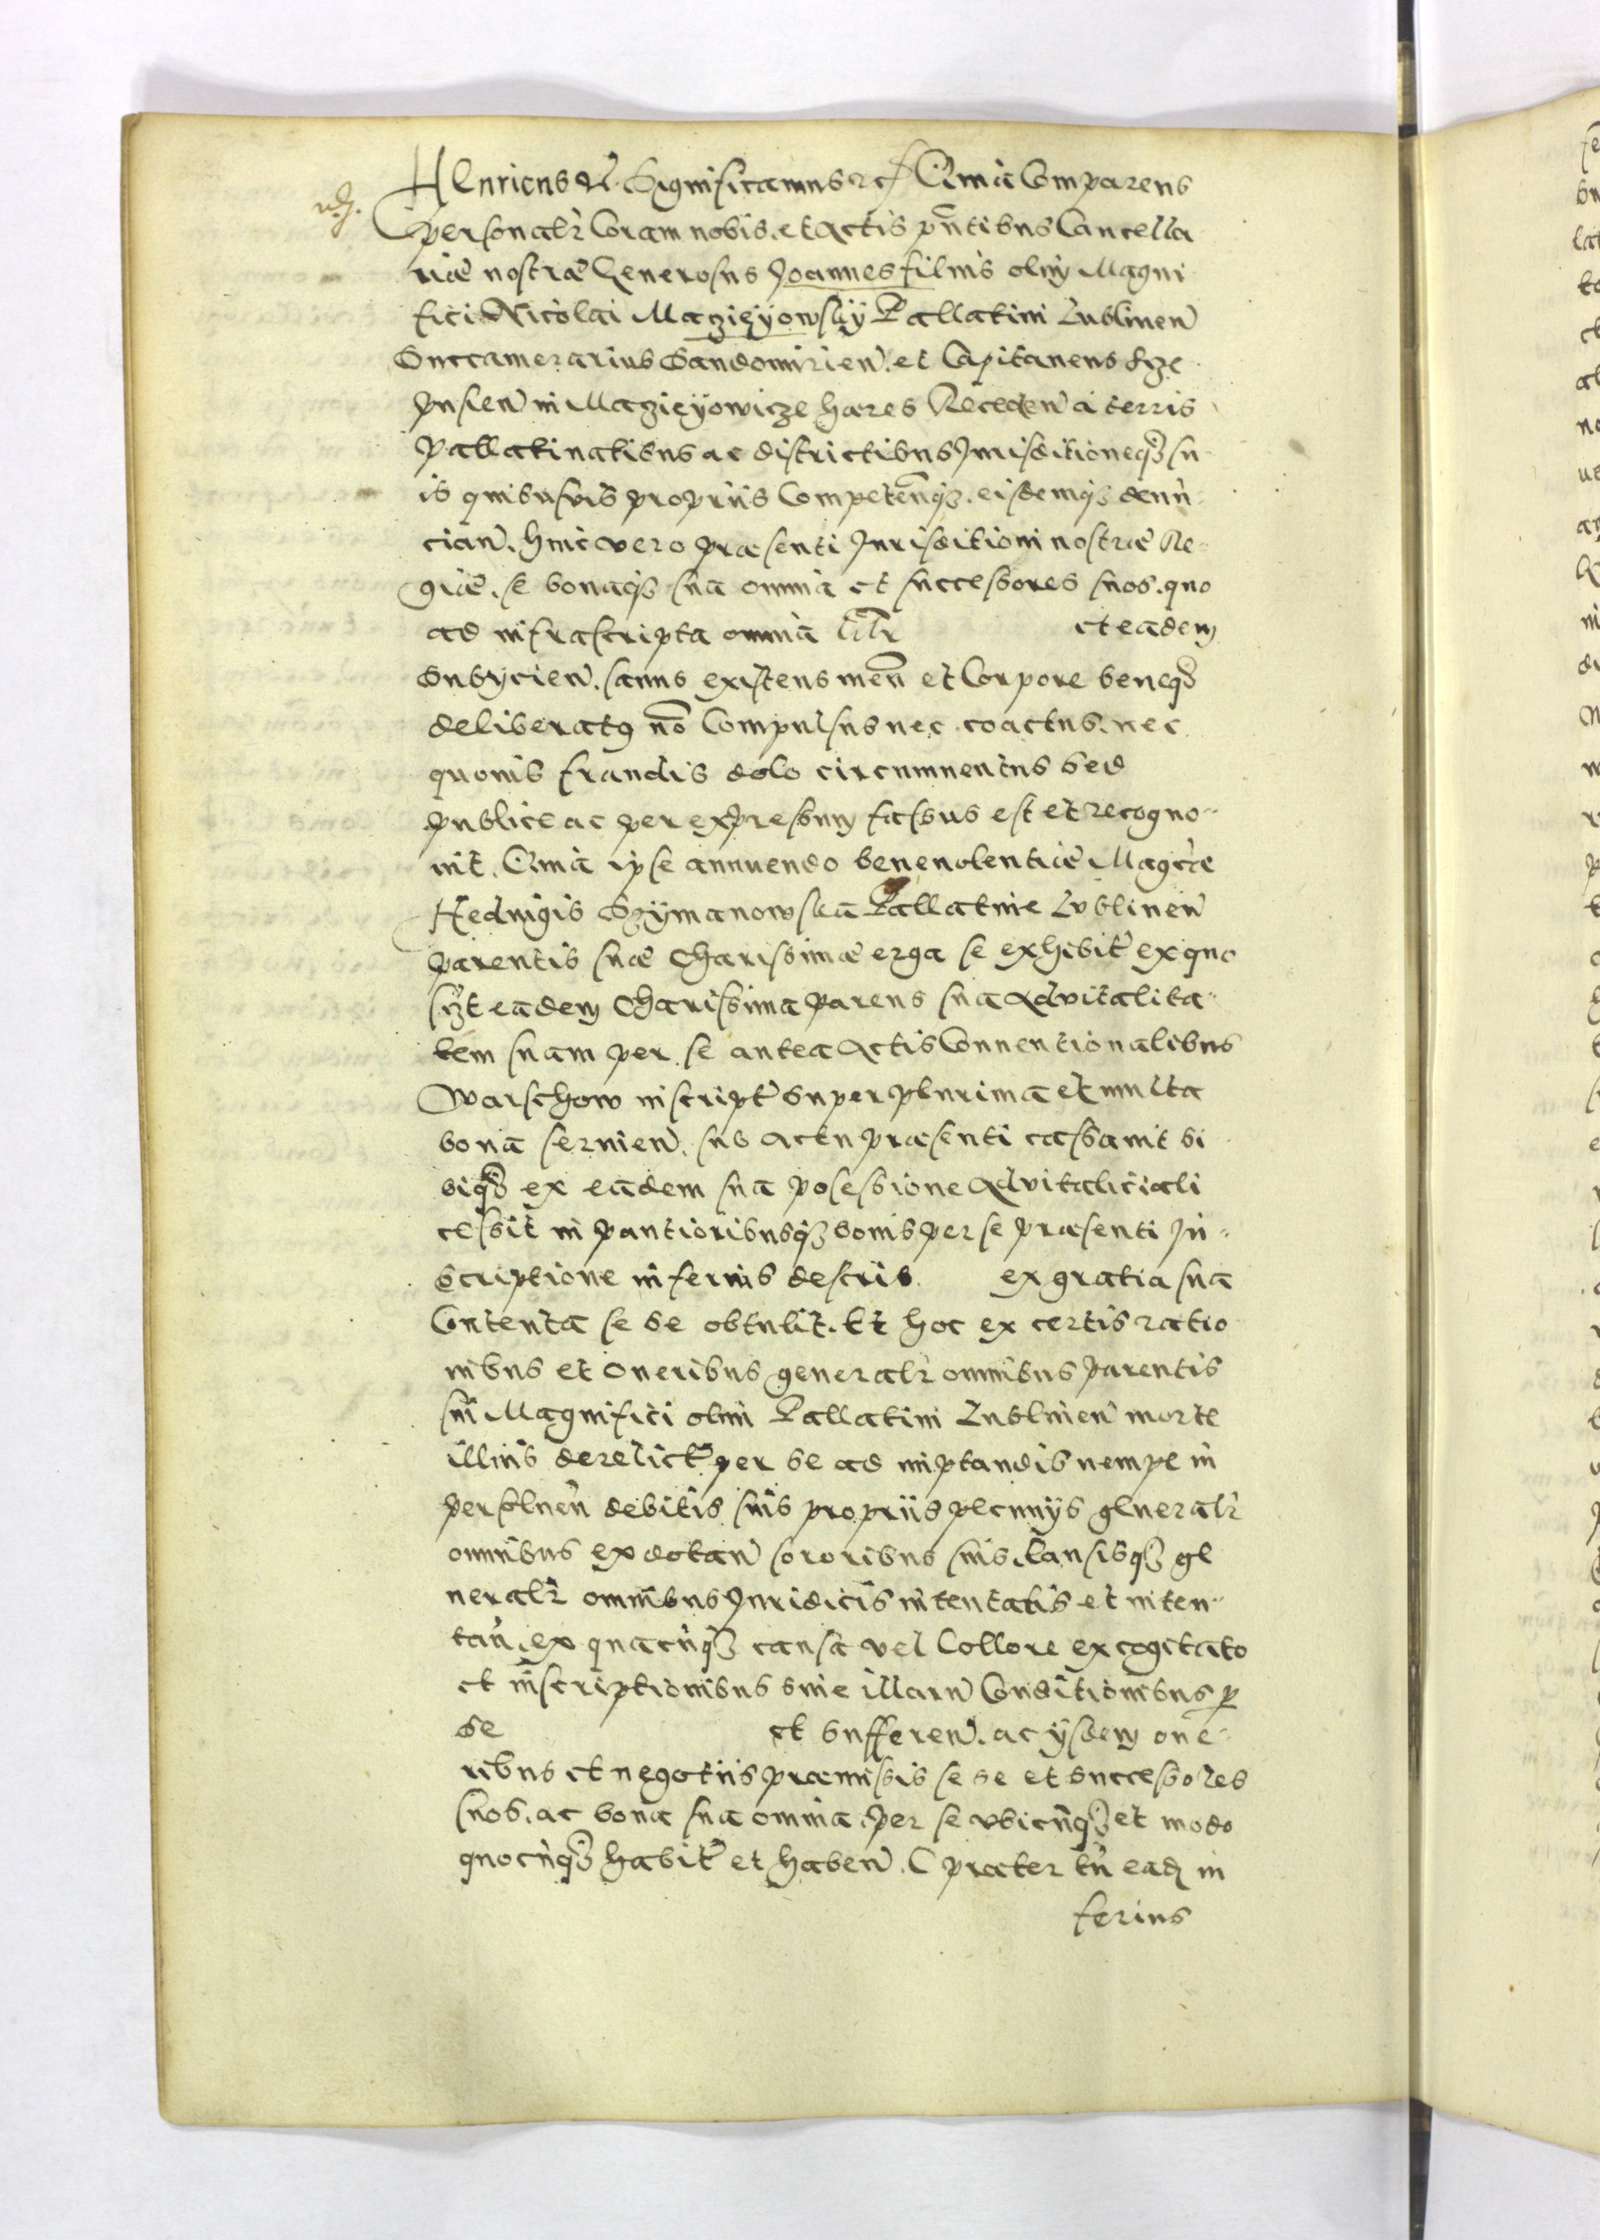 Henricus &c. Significamus &c. Quia Comparens
personalr Coram nobis. et Actis pntibus Cancella
riæ nostræ Generosus Joannes filius olim Magni
fici Nicolai Maczieÿowskÿ Pallatini Lublinen
Succamerarius Sandomirien. et Capitaneus
in Maczieÿowicze hæres Receden à terris
Pallatinatibus ac districtibus Jurisditioneqz su
is quibusvis propriis Competenqz. eisdemqz denu
cian. huic vero præsenti Jurisditioni nostræ Re
giæ. se bonaqz sua omnia et successores suos. quo
ad infrascripta omnia et eadem
Subÿcien. sanus existens men et Corpore beneqz
deliberatus no Compulsus nec coactus. nec
quovis fraudis dolo circumventus Sed
publice ac per expressum fassus est et recogno
vit. Quia ipse annuendo benevolentiæ Magcæ
Hedvigis Szÿmanowska Pallatinæ Lublinen
parentis suæ Charissimæ erga se exhibit ex quo
eadem Charissima parens sua Advitalita
tem suam per se antea Actis Conventionalibus
Warschow inscript super plurima et multa
bona servien. sub actu præsenti cassavit si
biqz ex eadem sua posessione Advitaliciali
cessit in pautioribusqz bonis per se præsenti In
scriptione inferius describ. ex gratia sua
Contenta se se obtulit. Et hoc ex certis ratio
nibus et Oneribus generalr omnibus Parentis
sui Magnifici olim Pallatini Lublinen morte
illius derelict per se ad imptandis nempe in
persolven debitis suis propriis pecuniÿs generalr
omnibus exdotan sororibus suis. Causisqz ge
neralr omnibus Juridicis intentatis et inten
tan. ex quacunqz causa vel Collore excogitato
et inscriptionibus sive illarum Conditionibus p
se et sufferen. ac ÿsdem one
ribus et negotiis præmissis se se et successores
suos. ac bona sua omnia. per se ubicunqz et modo
quocunqz habit et haben. præter tn ead in
ferius